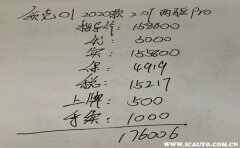 领克01 2020款 2.0T 两驱Pro
指导价：158800
优：3000
实：155800
保：4919
税：15217
上牌：500
手续：1000
176006
WWW.ICAUTO.COM.CN